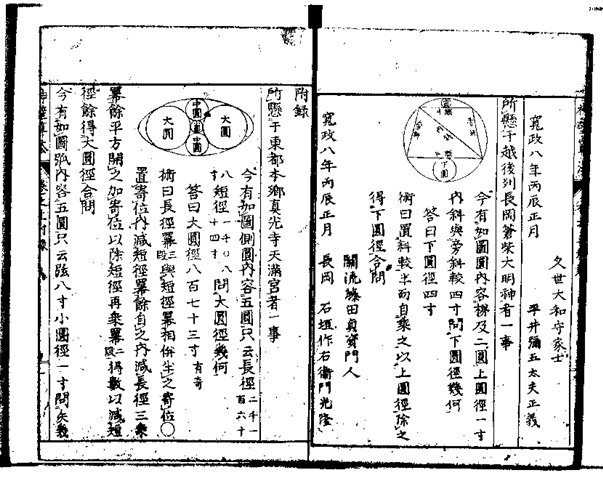 寛政八年丙辰正月
久世大和守家士
平井彌五太夫正義
所懸于越後州長岡蒼柴大明神者一事
今有如圖圓内容梯及二圓上圓徑一寸
内斜與旁斜較四寸問下圓徑幾何
答曰下圓徑四寸
術曰置斜較半而自乘之以上圓徑除之
得下圓徑合問
關流藤田貞資門人
寛政八年丙辰正月
長岡 石垣作右衛門光隆
附録
所懸于東都本郷真光寺天滿宮者一事
大圓
中圓
中圓
大圓
今有如圖側圓内容五圓只云長徑二千一百六十
八短徑一千〇八十四寸問大圓徑幾何
答曰大圓徑八百七十三寸有奇
術曰長徑冪三段與短徑冪相併半之寄位〇
置寄位内減短徑冪餘自之内減長徑三乘
冪餘平方開之加寄位以除短徑再乘冪二段得數以減短
徑餘得大圓徑合問
今有如圖弧内容五圓只云弦八寸小圓徑一寸問矢幾